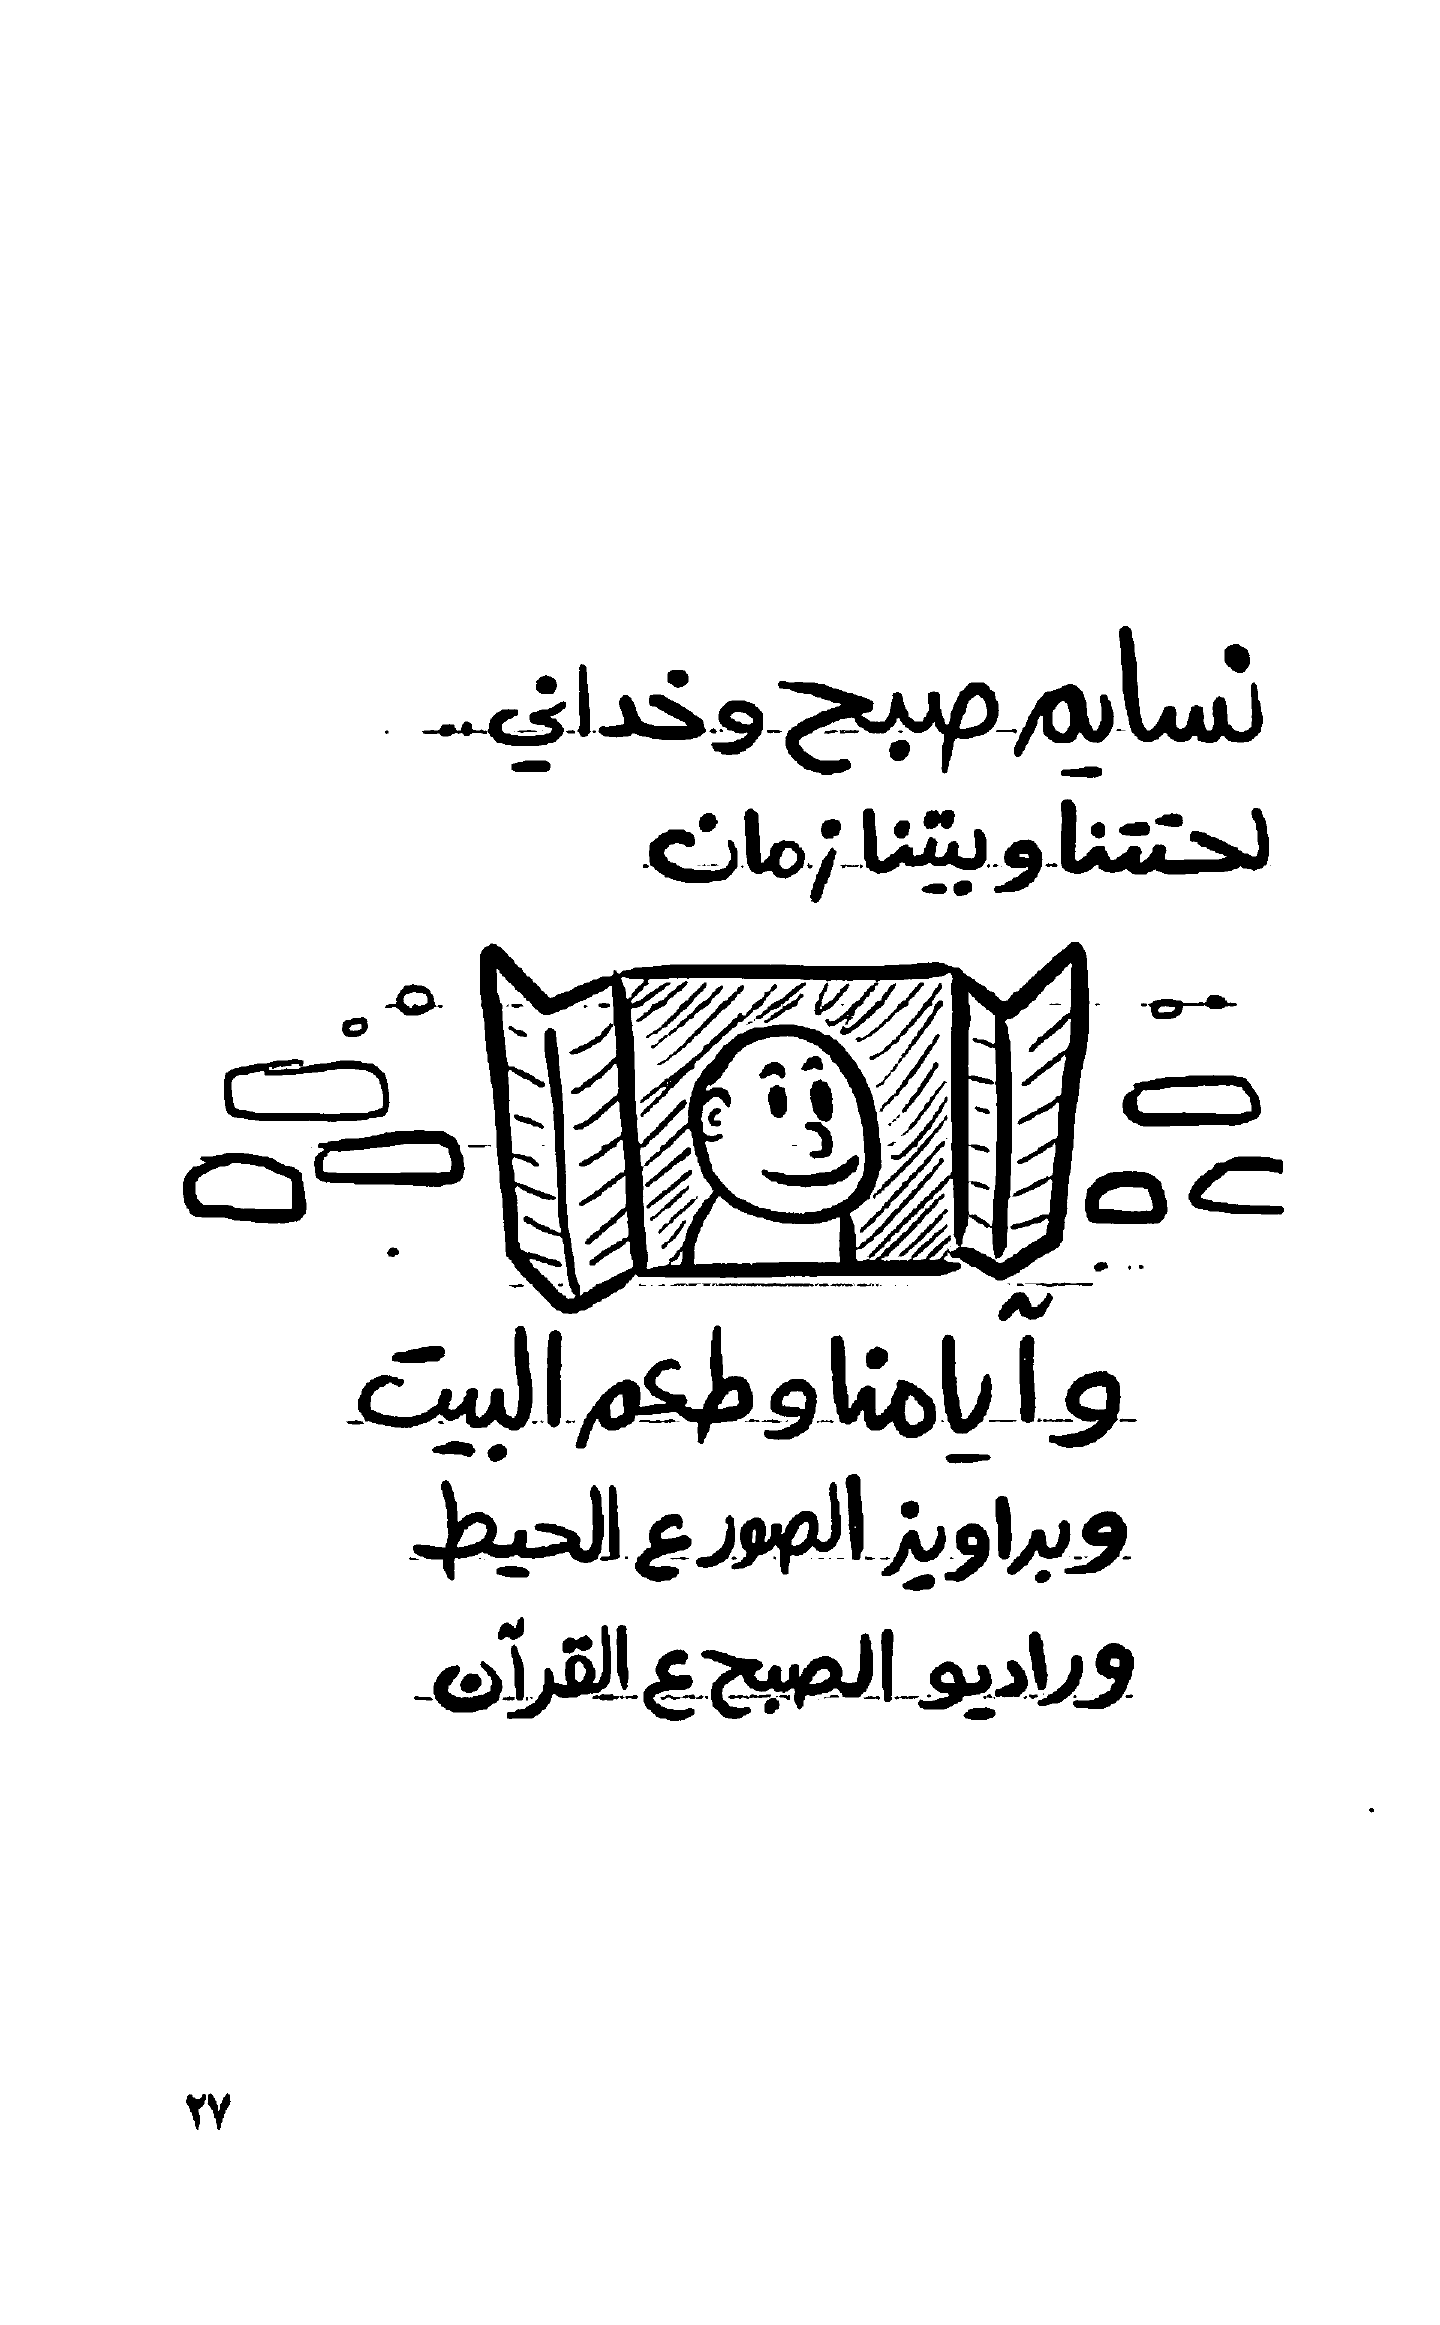 نسايم صبح وخداني...
لحتتنا وبيتنا زمان
وآيامنا وطعم البيت
وبراويز الصور ع الحيط
وراديو الصبح ع القرآن
٢٧